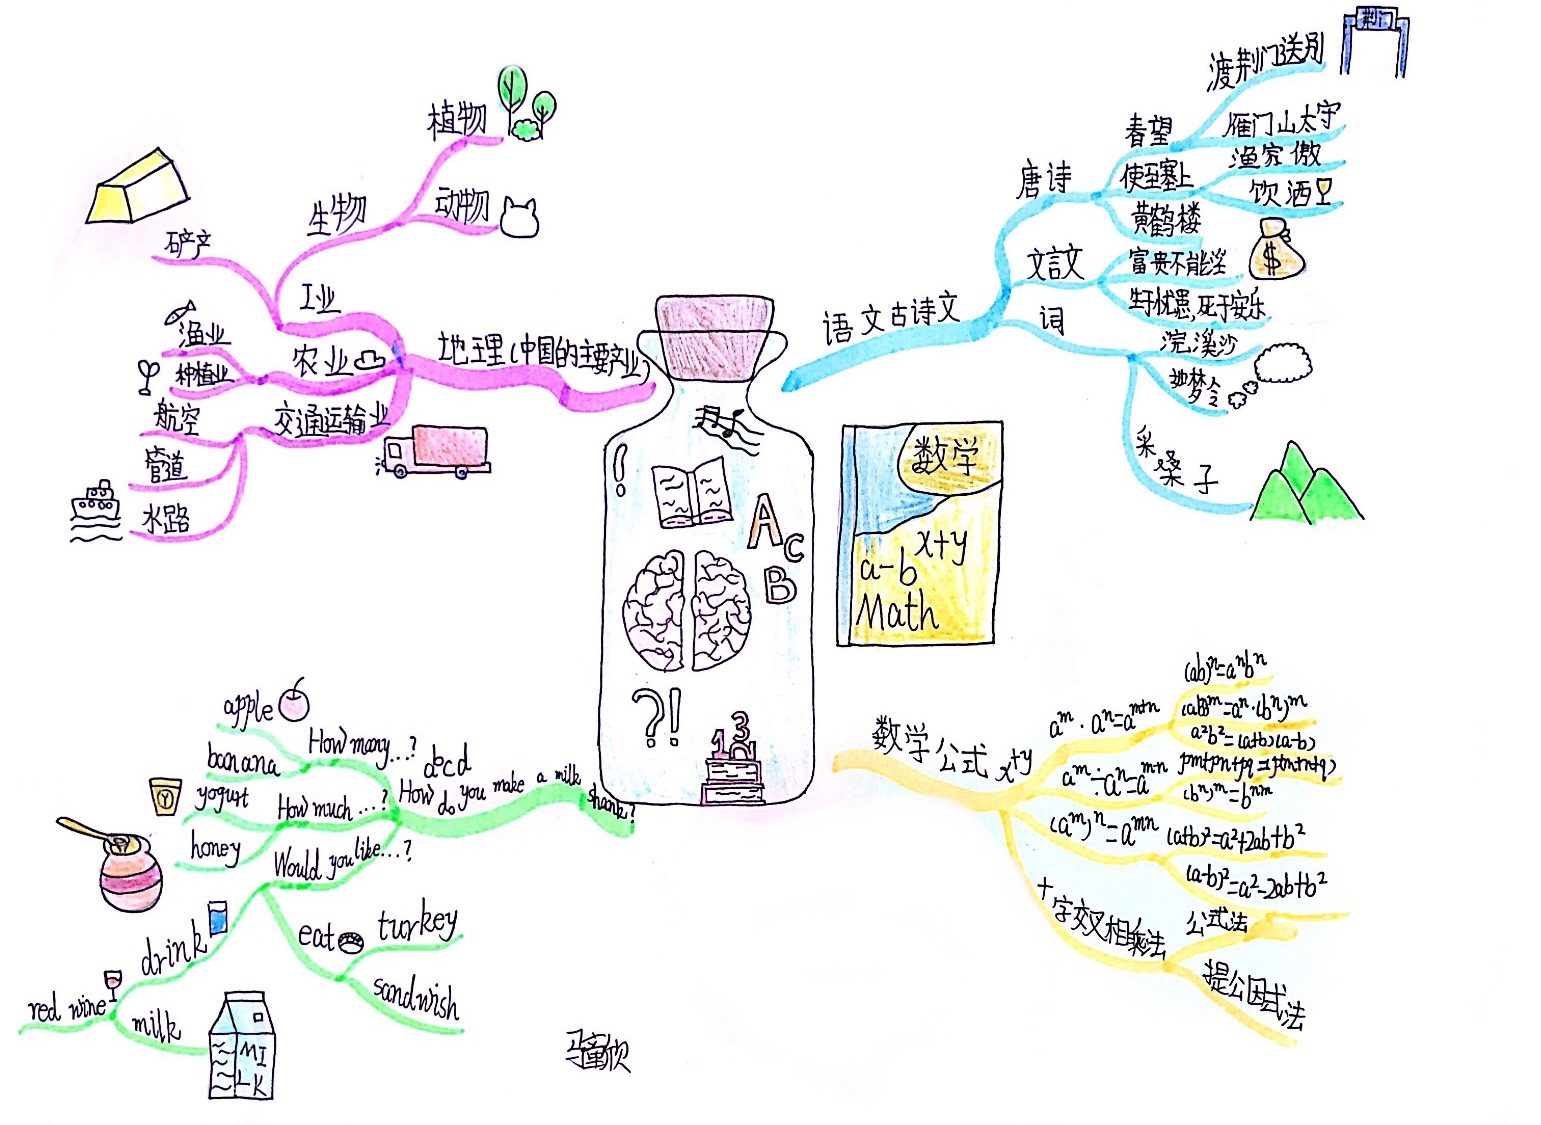 植物
动物
生物
矿产
工业
渔业
种植业
农业
航空
管道
水路
交通运输业
地理(中国的主要产业)
荆门
渡荆门送别
春望
雁门山太守
唐诗
使至塞上
渔家傲
饮酒
黄鹤楼
文言文
富贵不能淫
$
生于忧患,死于安乐
语文古诗文
词
浣溪沙
梦令
采桑子
!
A
C
B
?!
123
数学
x+y
a-b
Math
apple
How many...?
banana
yogurt
Y
How much ...?
honey
Would you like...?
abcd
How do you make a milk shank?
drink
eat
turkey
sandwish
red wine
milk
MI
LK
数学公式 x+y
aᵐ·aⁿ=aᵐ⁺ⁿ
(ab)ⁿ=aⁿbⁿ
=aⁿ·(bⁿ)ᵐ
a²b²=(a+b)(a-b)
aᵐ÷aⁿ=aᵐ⁻ⁿ
pm+pn+pq=p(m+n+q)
(bⁿ)ᵐ=bⁿᵐ
(aᵐ)ⁿ=aᵐⁿ
(a+b)²=a²+2ab+b²
(a-b)²=a²-2ab+b²
十字交叉相乘法
公式法
提公因式法
马童欣